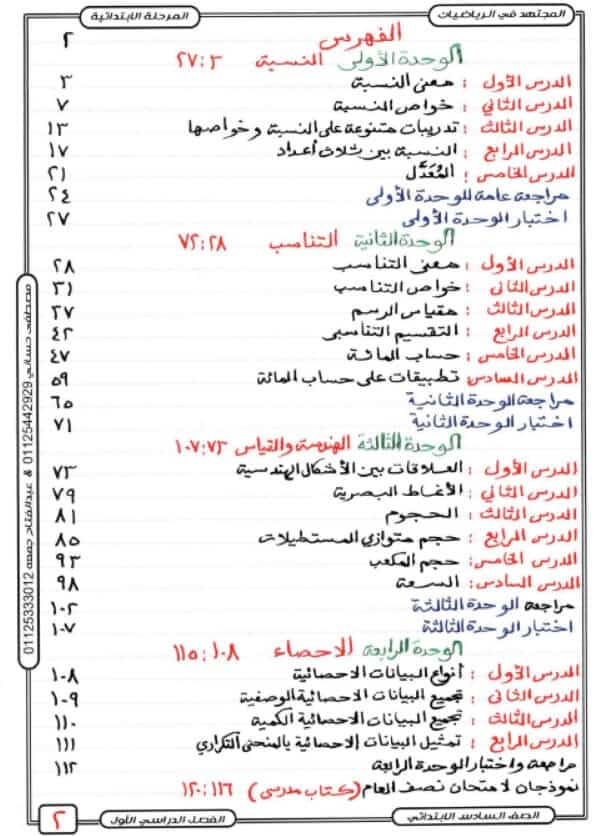 المجتهد في الرياضيات
المرحلة الابتدائية
الفهرس ٢
الوحدة الأولى النسبة ٣ : ٢٧
الدرس الأول : معنى النسبة ٣
الدرس الثاني : خواص النسبة ٧
الدرس الثالث : تدريبات متنوعة على النسبة وخواصها ١٣
الدرس الرابع : النسبة بين ثلاث أعداد ١٧
الدرس الخامس : المُعَدَّل ٢١
مراجعة عامة للوحدة الأولى ٢٤
اختبار الوحدة الأولى ٢٧
الوحدة الثانية التناسب ٢٨ : ٧٢
الدرس الأول : معنى التناسب ٢٨
الدرس الثاني : خواص التناسب ٣١
الدرس الثالث : مقياس الرسم ٣٧
الدرس الرابع : التقسيم التناسبى ٤٢
الدرس الخامس : حساب المائة ٤٧
الدرس السادس : تطبيقات على حساب المائة ٥٩
مراجعة الوحدة الثانية ٦٥
اختبار الوحدة الثانية ٧١
الوحدة الثالثة الهندسة والقياس ٧٣ : ١٠٧
الدرس الأول : العلاقات بين الأشكال الهندسية ٧٣
الدرس الثاني : الأنماط البصرية ٧٩
الدرس الثالث : الحجوم ٨١
الدرس الرابع : حجم متوازي المستطيلات ٨٥
الدرس الخامس : حجم المكعب ٩٣
الدرس السادس : السعة ٩٨
مراجعة الوحدة الثالثة ١٠٢
اختبار الوحدة الثالثة ١٠٧
الوحدة الرابعة الاحصاء ١٠٨ : ١١٥
الدرس الأول : أنواع البيانات الاحصائية ١٠٨
الدرس الثانى : تجميع البيانات الاحصائية الوصفية ١٠٩
الدرس الثالث : تجميع البيانات الاحصائية الكمية ١١٠
الدرس الرابع : تمثيل البيانات الإحصائية بالمنحنى التكراري ١١١
مراجعة واختبار الوحدة الرابعة ١١٢
نموذجان لامتحان نصف العام (كتاب مدرسى) ١١٦ : ١٢٠
مصطفى حساني 01125442929 & عبدالفتاح جمعه 01125333012
الصف السادس الابتدائي
الفصل الدراسي الأول
٢